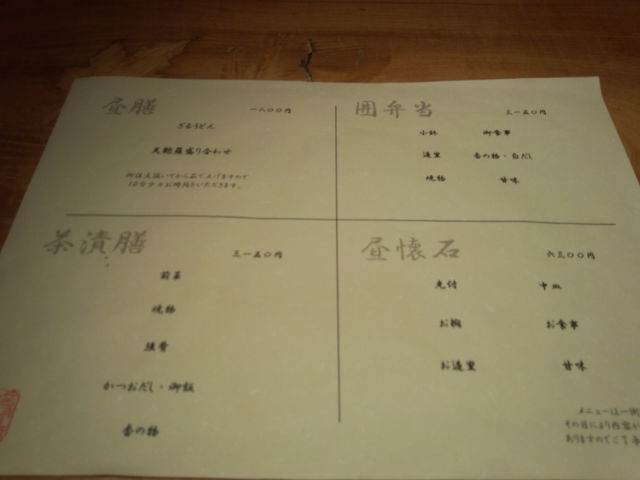 昼膳 一八〇〇円
ざるうどん
天麩羅盛り合わせ
御注文頂いてから茹で上げますので
10分少々お時間をいただきます。
囲弁当 三一五〇円
小鉢 御食事
造里 香の物・白だし
焼物 甘味
茶漬膳 三一五〇円
前菜
焼物
強肴
かつおだし・御飯
香の物
昼懐石 六三〇〇円
先付 中皿
お椀 お食事
お造里 甘味
メニューは一例
その日により内容が
ありますのでご了承